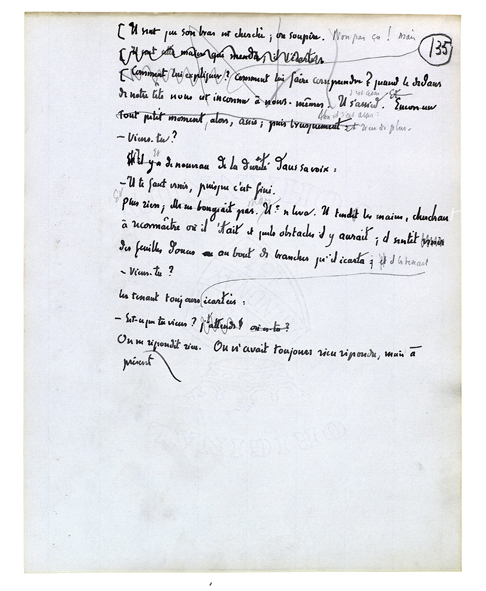 135
[ Il sent que son bras est cherché ; on soupire. Non pas ça ! mais
[ Il sent cette main qui monte, il l'écarte
[ Comment lui expliquer ? Comment lui faire comprendre ? quand le dedans
de notre tête nous est inconnu à nous-mêmes. Il s'assied. Encore un
tout petit moment, alors, assis ; puis brusquement et rien de plus.
– Viens-tu ?
Il y a de nouveau de la dureté dans sa voix :
– Il te faut venir, puisque c'est fini.
Plus rien ; elle ne bougeait pas. Il se leva. Il tendit les mains, cherchant
à reconnaître où il était et quels obstacles il y aurait ; il sentit
des feuilles douces au bout de branches qu'il écarta ; et il les tenant
– Viens-tu ?
les tenant toujours écartées :
– Est-ce que tu viens ? J'attends ! où es-tu ?
On ne répondit rien. On n'avait toujours rien répondu, mais à
présent